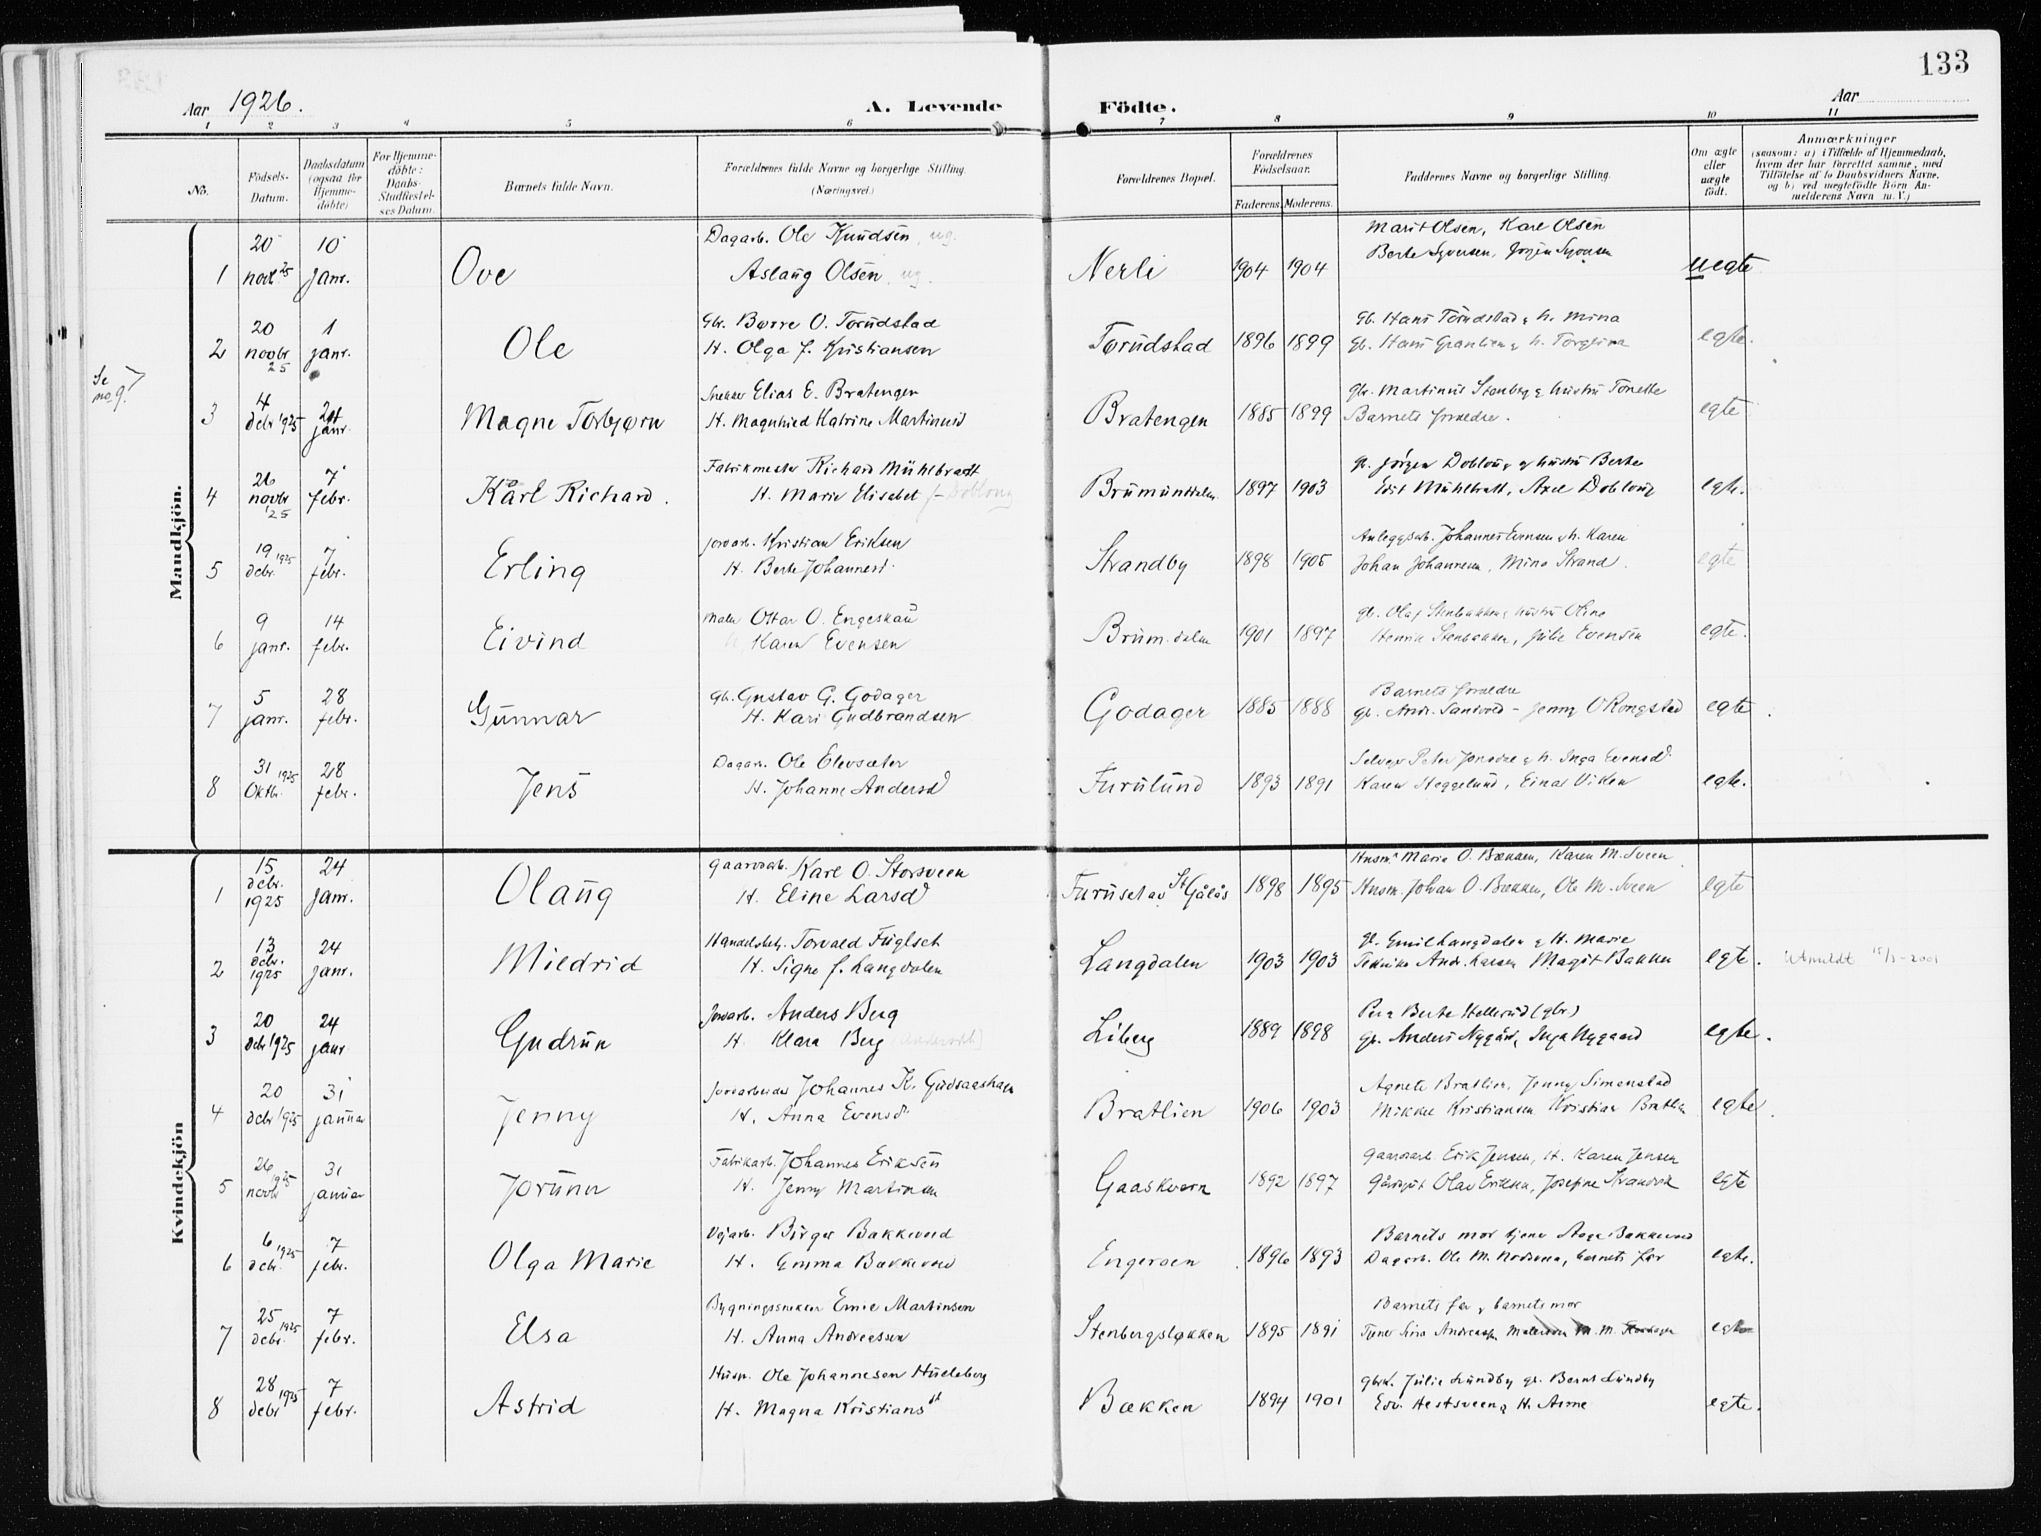 133
Aar 1926.
A. Levende Födte.
Aar
1 2 3 4 5 6 7 8 9 10 11
No.
Födsels-Datum.
Daabsdatum (ogsaa for Hjemme-döbte)
For Hjemme-döbte: Daabs-Stadfæstel-ses Datum.
Barnets fulde Navn.
Forældrenes fulde Navne og borgerlige Stilling. (Næringsvei.)
Forældrenes Bopæl.
Forældrenes Födselsaar.
Faderens. Moderens.
Faddernes Navne og borgerlige Stilling.
Om ægte eller uægte födt.
Anmærkninger
(saasom: a) i Tilfælde af Hjemmedaab, hvem der har forrettet samme, med Tilföielse af to Daabsvidners Navne, og b) ved uægtefödte Börn An-melderens Navn m. V.)
Mandkjön.
1 20 novbr 25 10 janr. Ove
Dagarb. Ole Knudsen, ug.
Aslaug Olsen, ug.
Nerli 1904 1904
Marit Olsen, Karl Olsen
Berte Syversen, Jørgen Syversen
uegte
2 20 novbr 25 1 janr. Ole
Gbr. Børre O. Torudstad
H. Olga f. Kristiansen
Torudstad 1896 1899
Gb. Hans Torudstad & h. Mina
Gb. Hans Granlien & h. Torgina
egte.
Se no 9.
3 4 debr 1925 24 janr. Magne Torbjørn
Snekker Elias E. Bratengen
H. Magnhild Katrine Martinusd
Bratengen 1885 1899
Gbr. Martinus Stenberg & hustru Tonette
Barnets forældre.
egte
4 26 novbr '25 7 febr. Kårl Richard.
Fabrikmester Richard Mühlbradt
H. Marie Elisabet f. Dobloug
Brumunddalen 1897 1903
g. Jörgen Dobloug og hustru Berte
Mühlbratt, Axel Dobloug
egte.
5 19 debr. 1925 7 febr. Erling
Jordarb. Kristian Eriksen
H. Berte Johannesd.
Strandby 1898 1905
Anleggsarb. Johannes Evensen & h. Karen
Johan Johannesen, Mina Strand.
egte
6 9 janr. 14 febr. Eivind
Maler Ottar O. Engeskau
H. Karen Evensen
Brum.dalen 1901 1897
gb. Olaf Stenbakken & hustru Oline
Henrik Stenbakken, Julie Evensen
egte.
7 5 janr. 28 febr. Gunnar
Gb. Gustav G. Godager
H. Kari Gudbrandsen
Godager 1885 1888
Barnets forældre
gb. Andr. Sandvold - Jenny O Rongstad
egte.
8 31 oktbr. 1925 28 febr. Jens
Dagarb. Ole Elevsæter
H. Johanne Andersd
Furulund 1893 1891
Selveier Peter & h. Inga Evensd
Karen Heggelund, Einar Viken
egte.
Kvindekjön
1 15 debr. 1925 24 janr. Olaug
Gaardarb. Karl O. Storsveen
H. Eline Larsd
Furuset av St Gålås 1898 1895
Husm. Marie O. Bækken, Karen M. Sveen
Husm. Johan O. Bækken, Ole M. Sveen
egte
2 13 debr. 1925 24 janr. Mildrid
Handelsbetj. Torvald Fuglset
H. Signe f. Langdalen
Langdalen 1903 1903
gb. Emil Langdalen & H. Marie
Andr. Larsen Magit Bakken
egte.
Utmeldt 15/3-2001
3 20 debr 1925 24 janr Gudrun
Jordarb. Anders Berg
H. Klara Berg
Liberg 1889 1898
Berte Hellerud (gbr.)
gb. Anders Nygård, Inga Nygaard
egte.
4 20 debr 1925 31 januar Jenny
Jordarbeider Johannes K. Gudsaashagen
H. Anna Evensd
Bratlien 1906 1903
Agnete Bratlien, Jenny Simenstad
Mikkel Kristiansen Kristian Bratlien
egte.
5 26 novbr 1925 31 januar Jorunn
Fabrikarb. Johannes Eriksen
H. Jenny Martinsen
Gaaskvern 1892 1897
Gaardarb Erik Jensen, H. Karen Jensen
Olav Eriksen, Josefine Strandvik
egte
6 6 debr. 1925 7 febr. Olga Marie
Vejarb. Birger Bakkerud
H. Emma Bakkerud
Engeroen 1896 1893
Barnets mor tjener Aage Bakkerud
Dagarb. Ole M. Nordsveen, barnets far
egte.
7 25 debr. 1925 7 febr. Elsa
Bygningssnekker Emil Martinsen
H. Anna Andreassen
Stenbergsløkken 1895 1891
Barnets far & barnets mor
egte
8 28 debr 1925 7 febr. Astrid
Husm. Ole Johannesen Hucleberg
H. Magna Kristiansdt
Bækken 1894 1901
gbrk. Julie Lundby gb. Bernt Lundby
Edv. Hestsveen & H. Anne
egte.